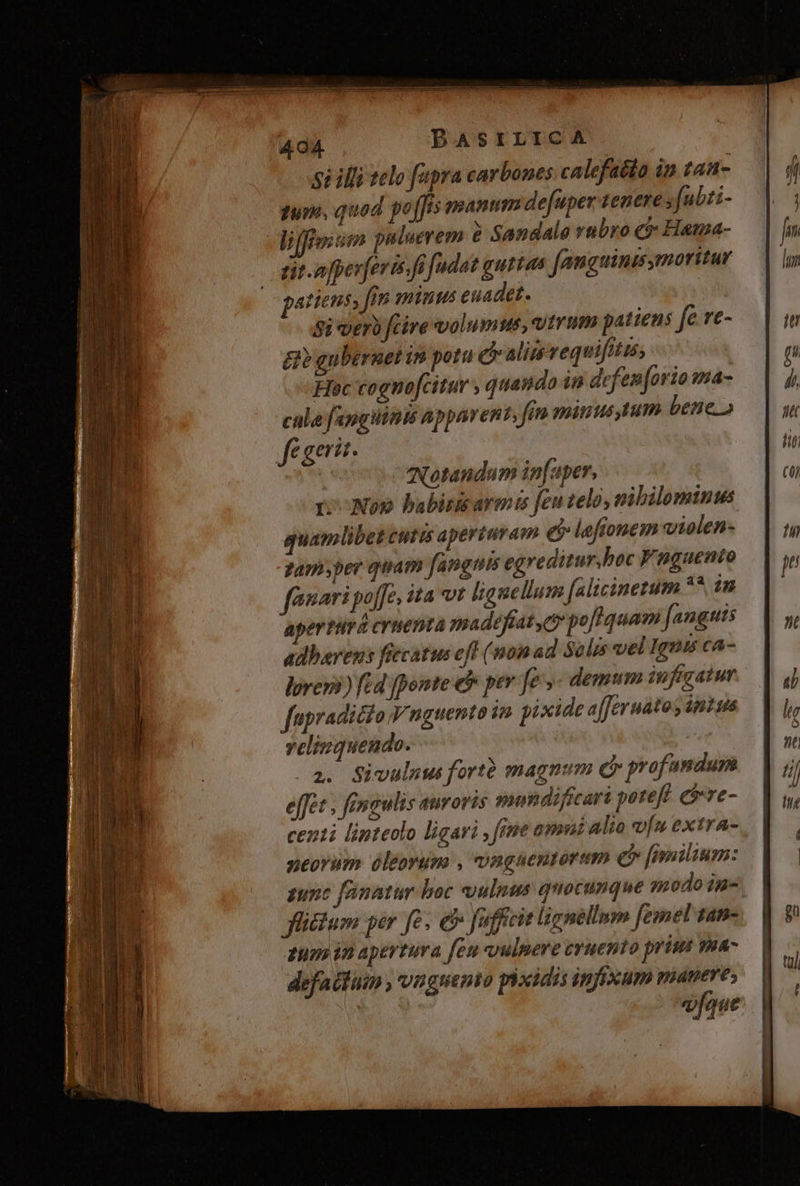 404 BASILICA
Si illi telo supra carbones calefacto in tan-
tum, quod possis manum desuper tenere, subti-
lissimum puluerem è Sandalo rubro & Hæma-
tit. asperseris, si sudat guttas sanguinis, moritur
patiens, sin minus euadet.
Si verò scire volumus, vtrum patiens se re-
ctè gubernet in potu & aliis requisitis,
Hoc cognoscitur, quando in defensorio ma-
culæ sanguinis apparent, sin minus, tum bene
se gerit.
Notandum insuper,
1. Non habitis armis seu telo, nihilominus
quamlibet cutis aperturam & læsionem violen-
tam, per quam sanguis egreditur, hoc Vnguento
sanari posse, ita vt lignellum salicinetum in
apertura cruenta madefiat, & postquam sanguis
adhærens siccatus est (non ad Solis vel Ignis ca-
lorem) sed sponte & per se, demum infigatur
supradicto Vnguento in pixide asseruato, intus
relinquendo.
2. Si vulnus fortè magnum & profundum
esset, singulis auroris mundificari potest & re-
centi linteolo ligari, sine omni alio vsu extra-
neorum oleorum, vnguentorum & similium:
tunc sanatur hoc vulnus quocunque modo in-
flictum per se, & sufficit lignellum semel tan-
tum in apertura seu vulnere cruento prius ma-
defactum, vnguento pixidis infixum manere,
vsque